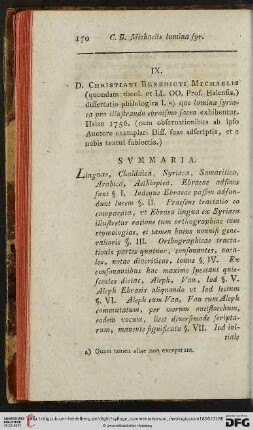 170 C. B. Michaelis lumina syr.
IX.
D. CHRISTIANI BENEDICTI MICHAELIS
(quondam theol. et LL. OO. Prof. Halensis,)
dissertatio philologica I. a) qua lumina syria-
ca pro illustrando ebraismo sacro exhibentur.
Halae 1756. (cum observationibus ab ipso
Auctore exemplari Diss. suae adscriptis, et a
nobis textui subiectis.)
SVMMARIA.
Linguae, Chaldaica, Syriaca, Samaritica,
Arabica, Aethiopica, Ebraeae adfines
sunt §. I. Indeque Ebraeae passim adfun-
dunt lucem §. II. Praesens tractatio eo
comparata, vt Ebraea lingua ex Syriaca
illustretur ratione tum orthographiae tum
etymologias, et tamen huius nonnisi gene-
ralioris §. III. Orthographicae tracta-
tionis partes quatuor, consonantes, voca-
les, notae diacriticae, tonus §. IV. En
consonantibus hac maxime spectant quie-
scentes dictae, Aleph, Vau, Iod §. V.
Aleph Ebraeis aliquando vt Iod lectum
§. VI. Aleph cum Vau, Vau cum Aleph
commutatum, per vocum
eadem vocum, licet diversimode scripta-
rum, manente significatu §. VII. Iod ini-
tiale
a) Quam tamen aliae non exceperunt.